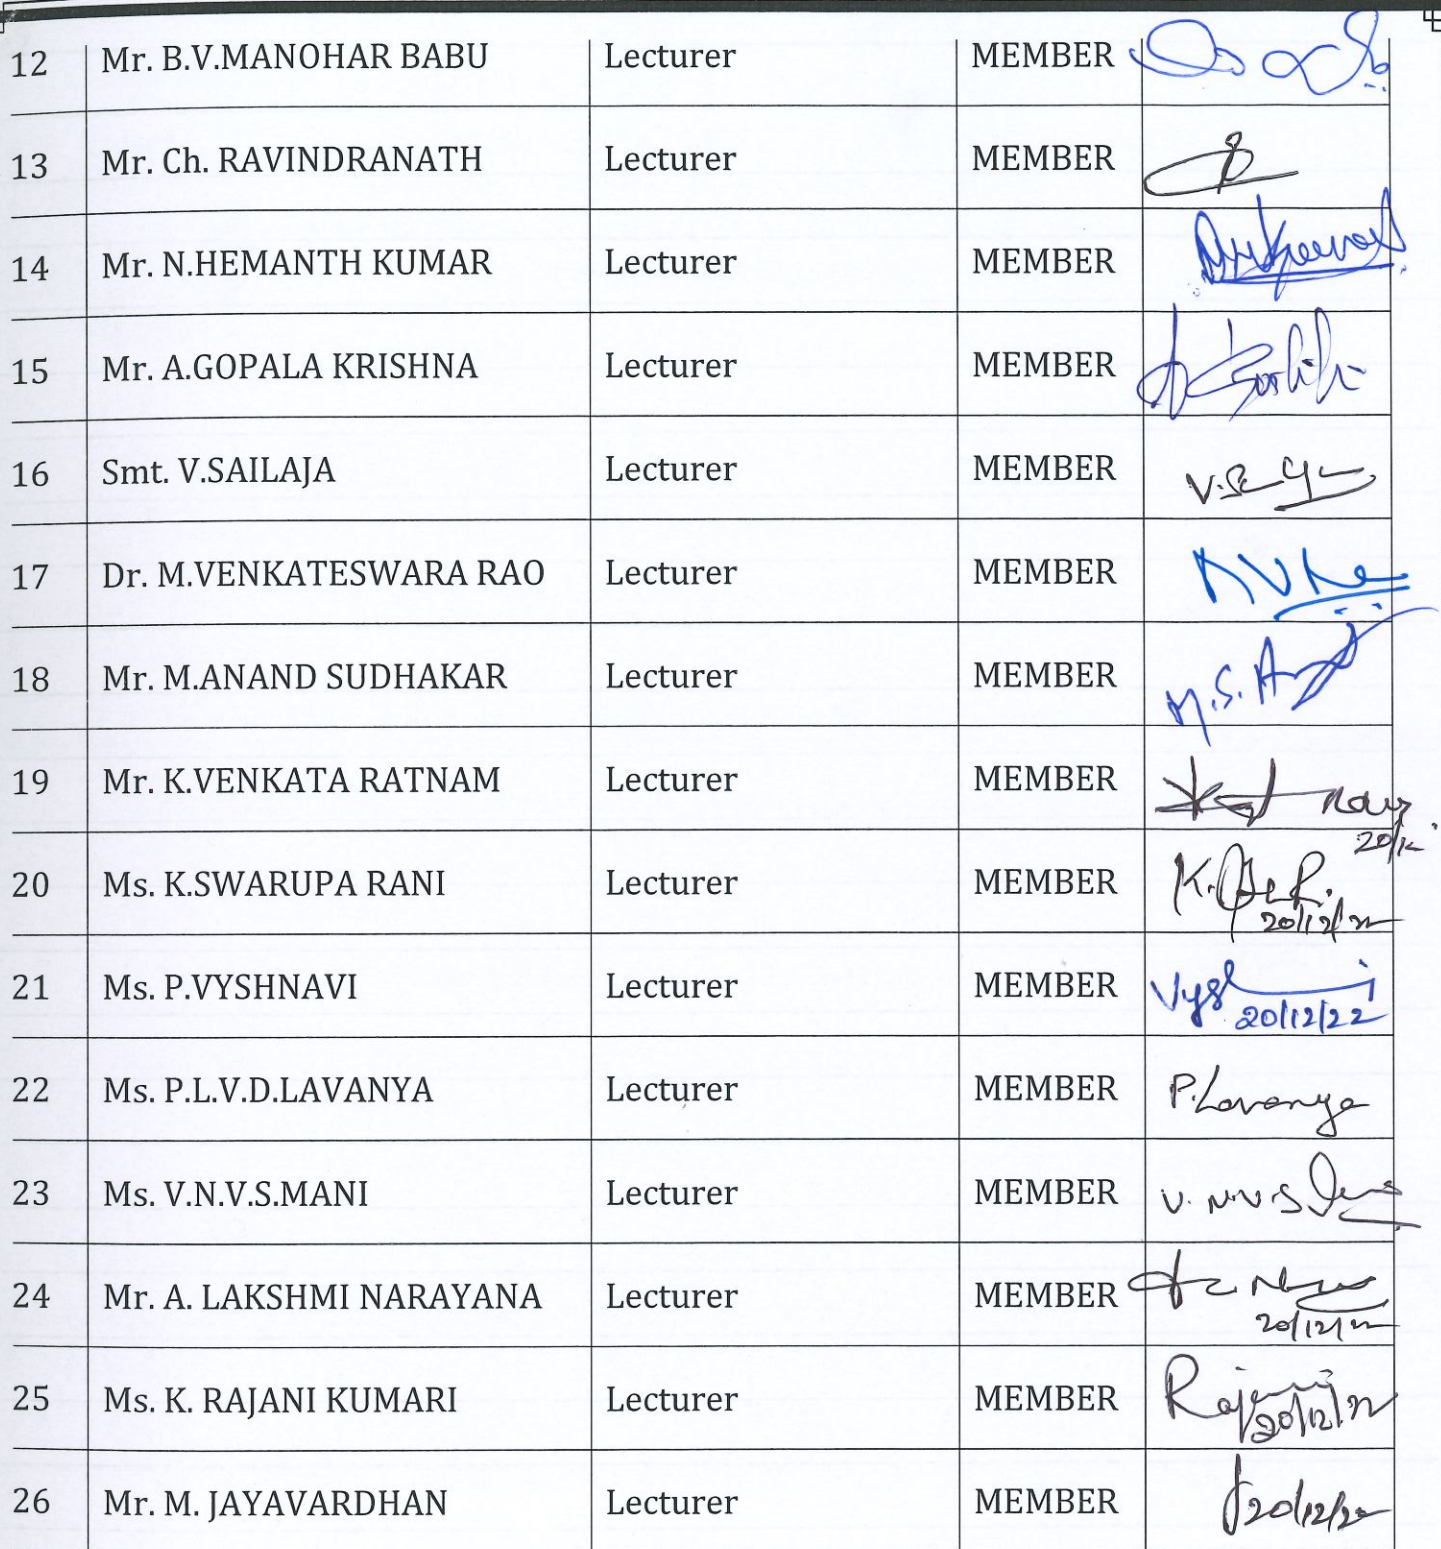 12 Mr. B.V.MANOHAR BABU Lecturer MEMBER
13 Mr. Ch. RAVINDRANATH Lecturer MEMBER
14 Mr. N.HEMANTH KUMAR Lecturer MEMBER
15 Mr. A.GOPALA KRISHNA Lecturer MEMBER
16 Smt. V.SAILAJA Lecturer MEMBER
17 Dr. M.VENKATESWARA RAO Lecturer MEMBER
18 Mr. M.ANAND SUDHAKAR Lecturer MEMBER M.S.
19 Mr. K.VENKATA RATNAM Lecturer MEMBER
20/12
20 Ms. K.SWARUPA RANI Lecturer MEMBER
20/12/22
21 Ms. P.VYSHNAVI Lecturer MEMBER
20/12/22
22 Ms. P.L.V.D.LAVANYA Lecturer MEMBER P.Lavanya
23 Ms. V.N.V.S.MANI Lecturer MEMBER V.N.V.S
24 Mr. A. LAKSHMI NARAYANA Lecturer MEMBER
20/12/22
25 Ms. K. RAJANI KUMARI Lecturer MEMBER
20/12/22
26 Mr. M. JAYAVARDHAN Lecturer MEMBER 20/12/22